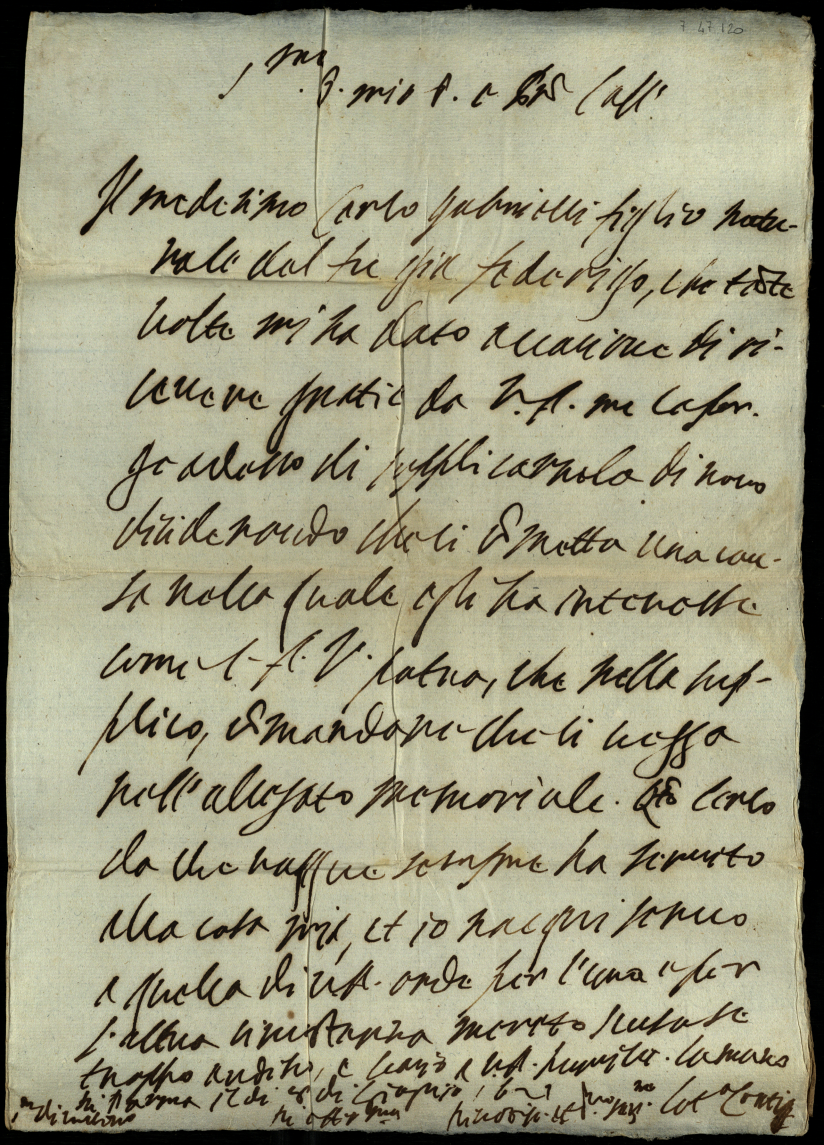 7 47 120
S.mia P. e
Il medesimo Carlo Gabrielli figlio natu-
rale del fu già Federigo, che tante
volte mi ha dato occasione di ri-
cevere gratie da V. A. me ha
adesso di supplicarnela di novo
desiderando che si metta una cau-
sa nella quale egli ha interesse
come V. A. potrà, che nella sup-
plico, comandare che si vegga
nell'allegato memoriale. Qto Carlo
da che nacque sempre ha servito
alla casa mia, et io nacqui servo
a quella di V.A. onde per l'una e per
l'altra circostanza merito scusa se
troppo ardisco, e bacio a V.A. humilte. la mano
di di Giugno